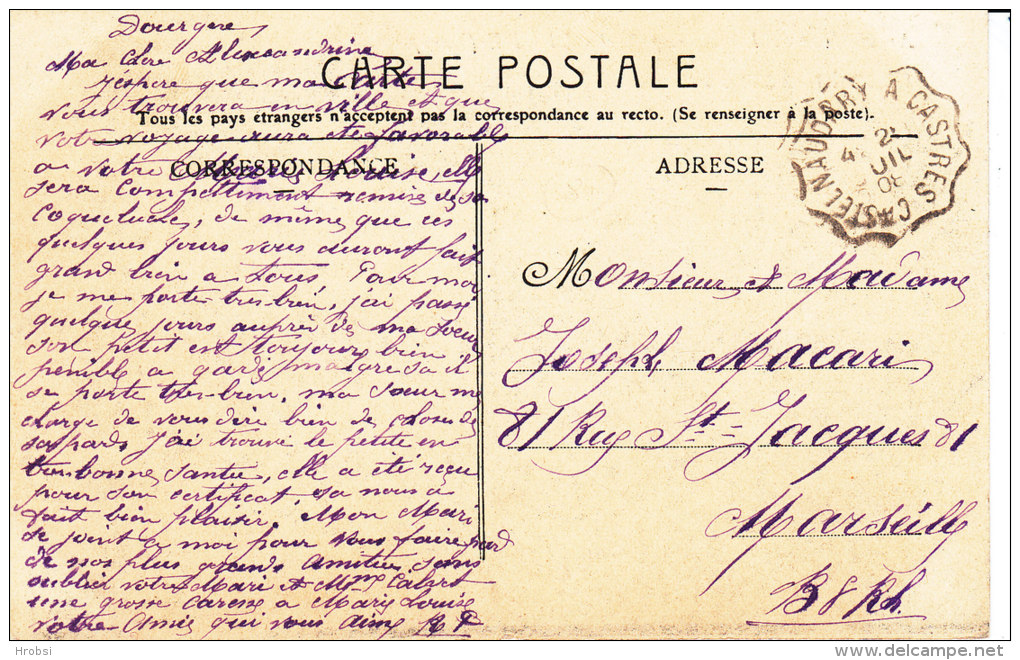 Dourgne
Ma Chere Alexandrine
J'éspere que ma carte
CARTE POSTALE
vous trouvera en ville et que
Tous les pays etrangers n'acceptent pas la correspondance au recto. (Se renseigner à la poste).
votre voyage aura eté favorable
CORRESPONDANCE
a votre Marie Louise, elle
sera complettement remise de sa
coqueluche, de même que ces
quelques jours vous auront fait
grand bien a tous. Pour moi
je me porte tres bien, j'ai passé
quelques jours auprès de ma soeur
son petit est toujours bien
penible a garde malgre sa il
se porte tres bien, ma soeur me
charge de vous dire bien de choses de
sa part. J'ai trouvé le petite en
tres bonne santée, elle a eté reçu
pour son certificat, sa nous a
fait bien plaisir. Mon Mari
se joint a moi pour vous faire part
de nos plus grands amitiés sans
oublier votre Mari et Mme Calvet
une grosse caresse a Marie Louise
votre Amie qui vous aime R P
ADRESSE
CASTELNAUDARY A CASTRES
21
JUIL
08
Monsieur et Madame
Joseph Macari
81 Rue St Jacques 81
Marseille
B d Rh.